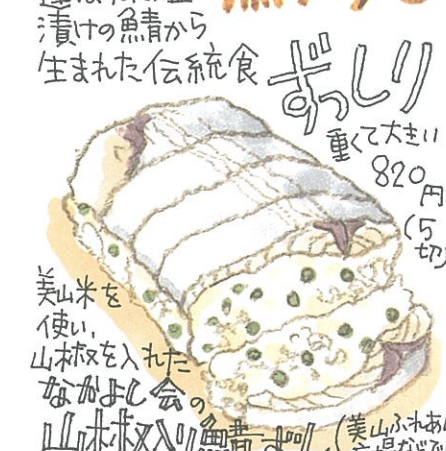 漬けの鯖から
生まれた伝統食
ずっしり
重くて大きい
820円
(5切)
美山米を
使い、
山椒を入れた
なかよし会の
山椒入り鯖ずし
(美山ふれあい